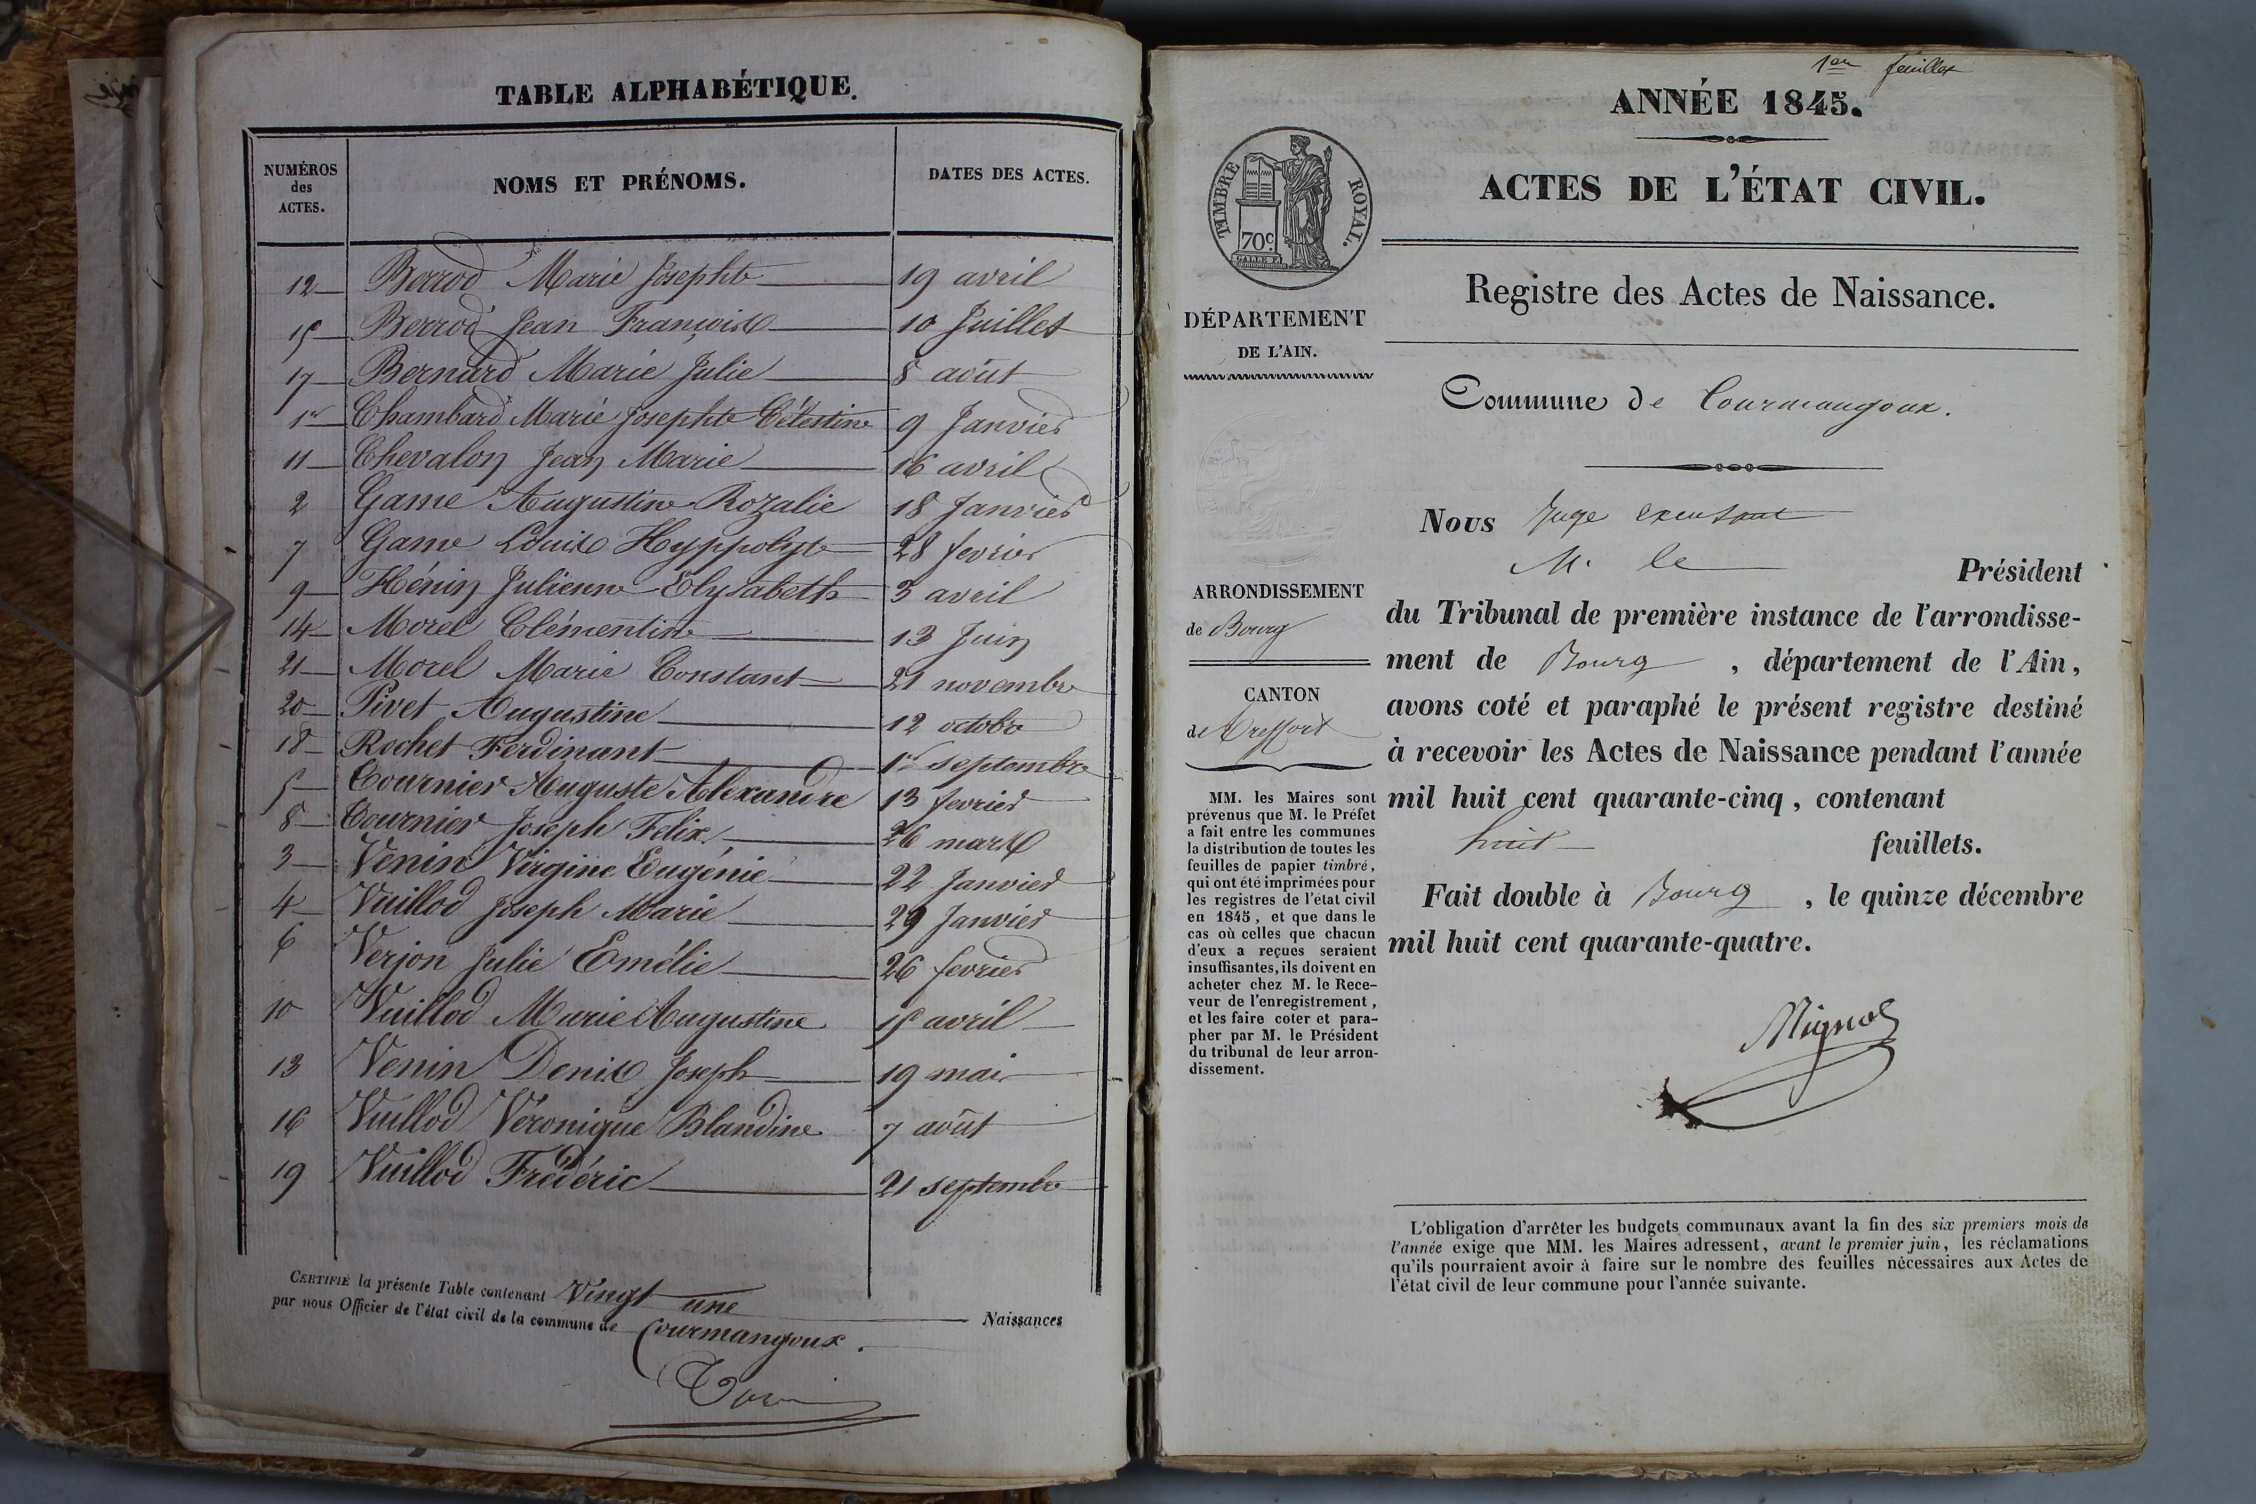 TABLE ALPHABÉTIQUE.
NUMÉROS des ACTES. NOMS ET PRÉNOMS. DATES DES ACTES.
12 Berrod Marie Josephte 19 avril
15 Berrod Jean François 10 Juillet
17 Bernard Marie Julie 8 août
1er Chambard Marie Josephte Célestine 9 Janvier
11 Chevalon Jean Marie 16 avril
2 Game Augustine Rozalie 18 Janvier
7 Game Louis Hyppolyte 28 fevrier
9 Hénin Julienne Elysabeth 3 avril
14 Morel Clémentine 13 Juin
21 Morel Marie Constant 21 novembre
20 Pivet Augustine 12 octobre
18 Rochet Ferdinant 1er septembre
5 Tournier Auguste Alexandre 13 fevrier
8 Tournier Joseph Felix 26 mars
3 Venin Virgine Eugénie 22 Janvier
4 Vuillod Joseph Marie 29 Janvier
6 Verjon Julie Emélie 26 fevrier
10 Vuillod Marie Augustine 15 avril
13 Venin Denis Joseph 19 mai
16 Vuillod Véronique Blandine 7 août
19 Vuillod Frédéric 21 septembre
CERTIFIÉ la présente Table contenant Vingt une Naissances
par nous Officier de l'état civil de la commune de Courmangoux.
1er feuillet
ANNÉE 1845.
ACTES DE L'ÉTAT CIVIL.
TIMBRE ROYAL.
70c.
Registre des Actes de Naissance.
DÉPARTEMENT
DE L'AIN.
Commune de Courmangoux.
Nous Juge
M. le Président
du Tribunal de première instance de l'arrondisse-
ment de Bourg, département de l'Ain,
avons coté et paraphé le présent registre destiné
à recevoir les Actes de Naissance pendant l'année
mil huit cent quarante-cinq, contenant
huit feuillets.
Fait double à Bourg, le quinze décembre
mil huit cent quarante-quatre.
ARRONDISSEMENT
de Bourg
CANTON
de Treffort
MM. les Maires sont
prévenus que M. le Préfet
a fait entre les communes
la distribution de toutes les
feuilles de papier timbré,
qui ont été imprimées pour
les registres de l'état civil
en 1845, et que dans le
cas où celles que chacun
d'eux a reçues seraient
insuffisantes, ils doivent en
acheter chez M. le Rece-
veur de l'enregistrement,
et les faire coter et para-
pher par M. le Président
du tribunal de leur arron-
dissement.
L'obligation d'arrêter les budgets communaux avant la fin des six premiers mois de
l'année exige que MM. les Maires adressent, avant le premier juin, les réclamations
qu'ils pourraient avoir à faire sur le nombre des feuilles nécessaires aux Actes de
l'état civil de leur commune pour l'année suivante.